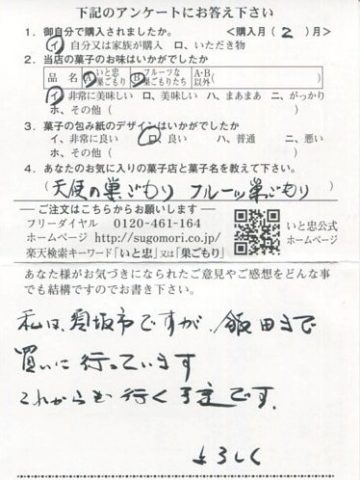 下記のアンケートにお答え下さい
1. 御自分で購入されましたか。 <購入月(2)月>
イ、自分又は家族が購入 ロ、いただき物
2. 当店の菓子のお味はいかがでしたか
品名 A いと忠巣ごもり B フルーツな巣ごもりたち A・B以外( )
イ、非常に美味しい ロ、美味しい ハ、まあまあ ニ、がっかり
ホ、その他( )
3. 菓子の包み紙のデザインはいかがでしたか
イ、非常に良い ロ、良い ハ、普通 ニ、悪い
ホ、その他( )
4. あなたのお気に入りの菓子店と菓子名を教えて下さい。
(天使の巣ごもり フルーツ巣ごもり)
― ご注文はこちらからお願いします ―
フリーダイヤル 0120-461-164
ホームページ http://sugomori.co.jp/
楽天検索キーワード「いと忠」又は「巣ごもり」
いと忠公式
ホームページ
あなた様がお気づきになられたご意見やご感想をどんな事
でも結構ですのでお書き下さい。
私は、須坂市ですが、飯田まで
買いに行っています
これからも行く予定です。
よろしく